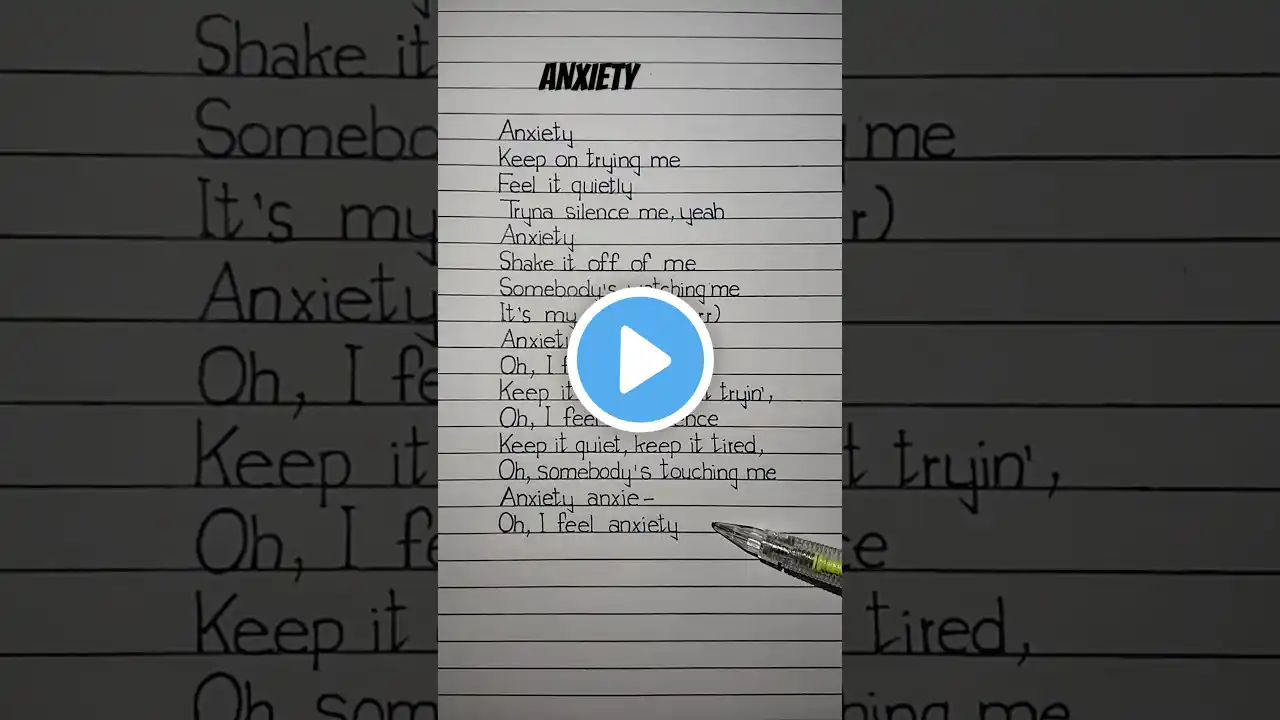 ANXIETY
Anxiety
Keep on trying me
Feel it quietly
Tryna silence me, yeah
Anxiety
Shake it off of me
Somebody's watching me
It's my
Anxiety
Oh, I
Keep it tryin',
Oh, I feel
Keep it quiet, keep it tired,
Oh, somebody's touching me
Anxiety anxie-
Oh, I feel anxiety